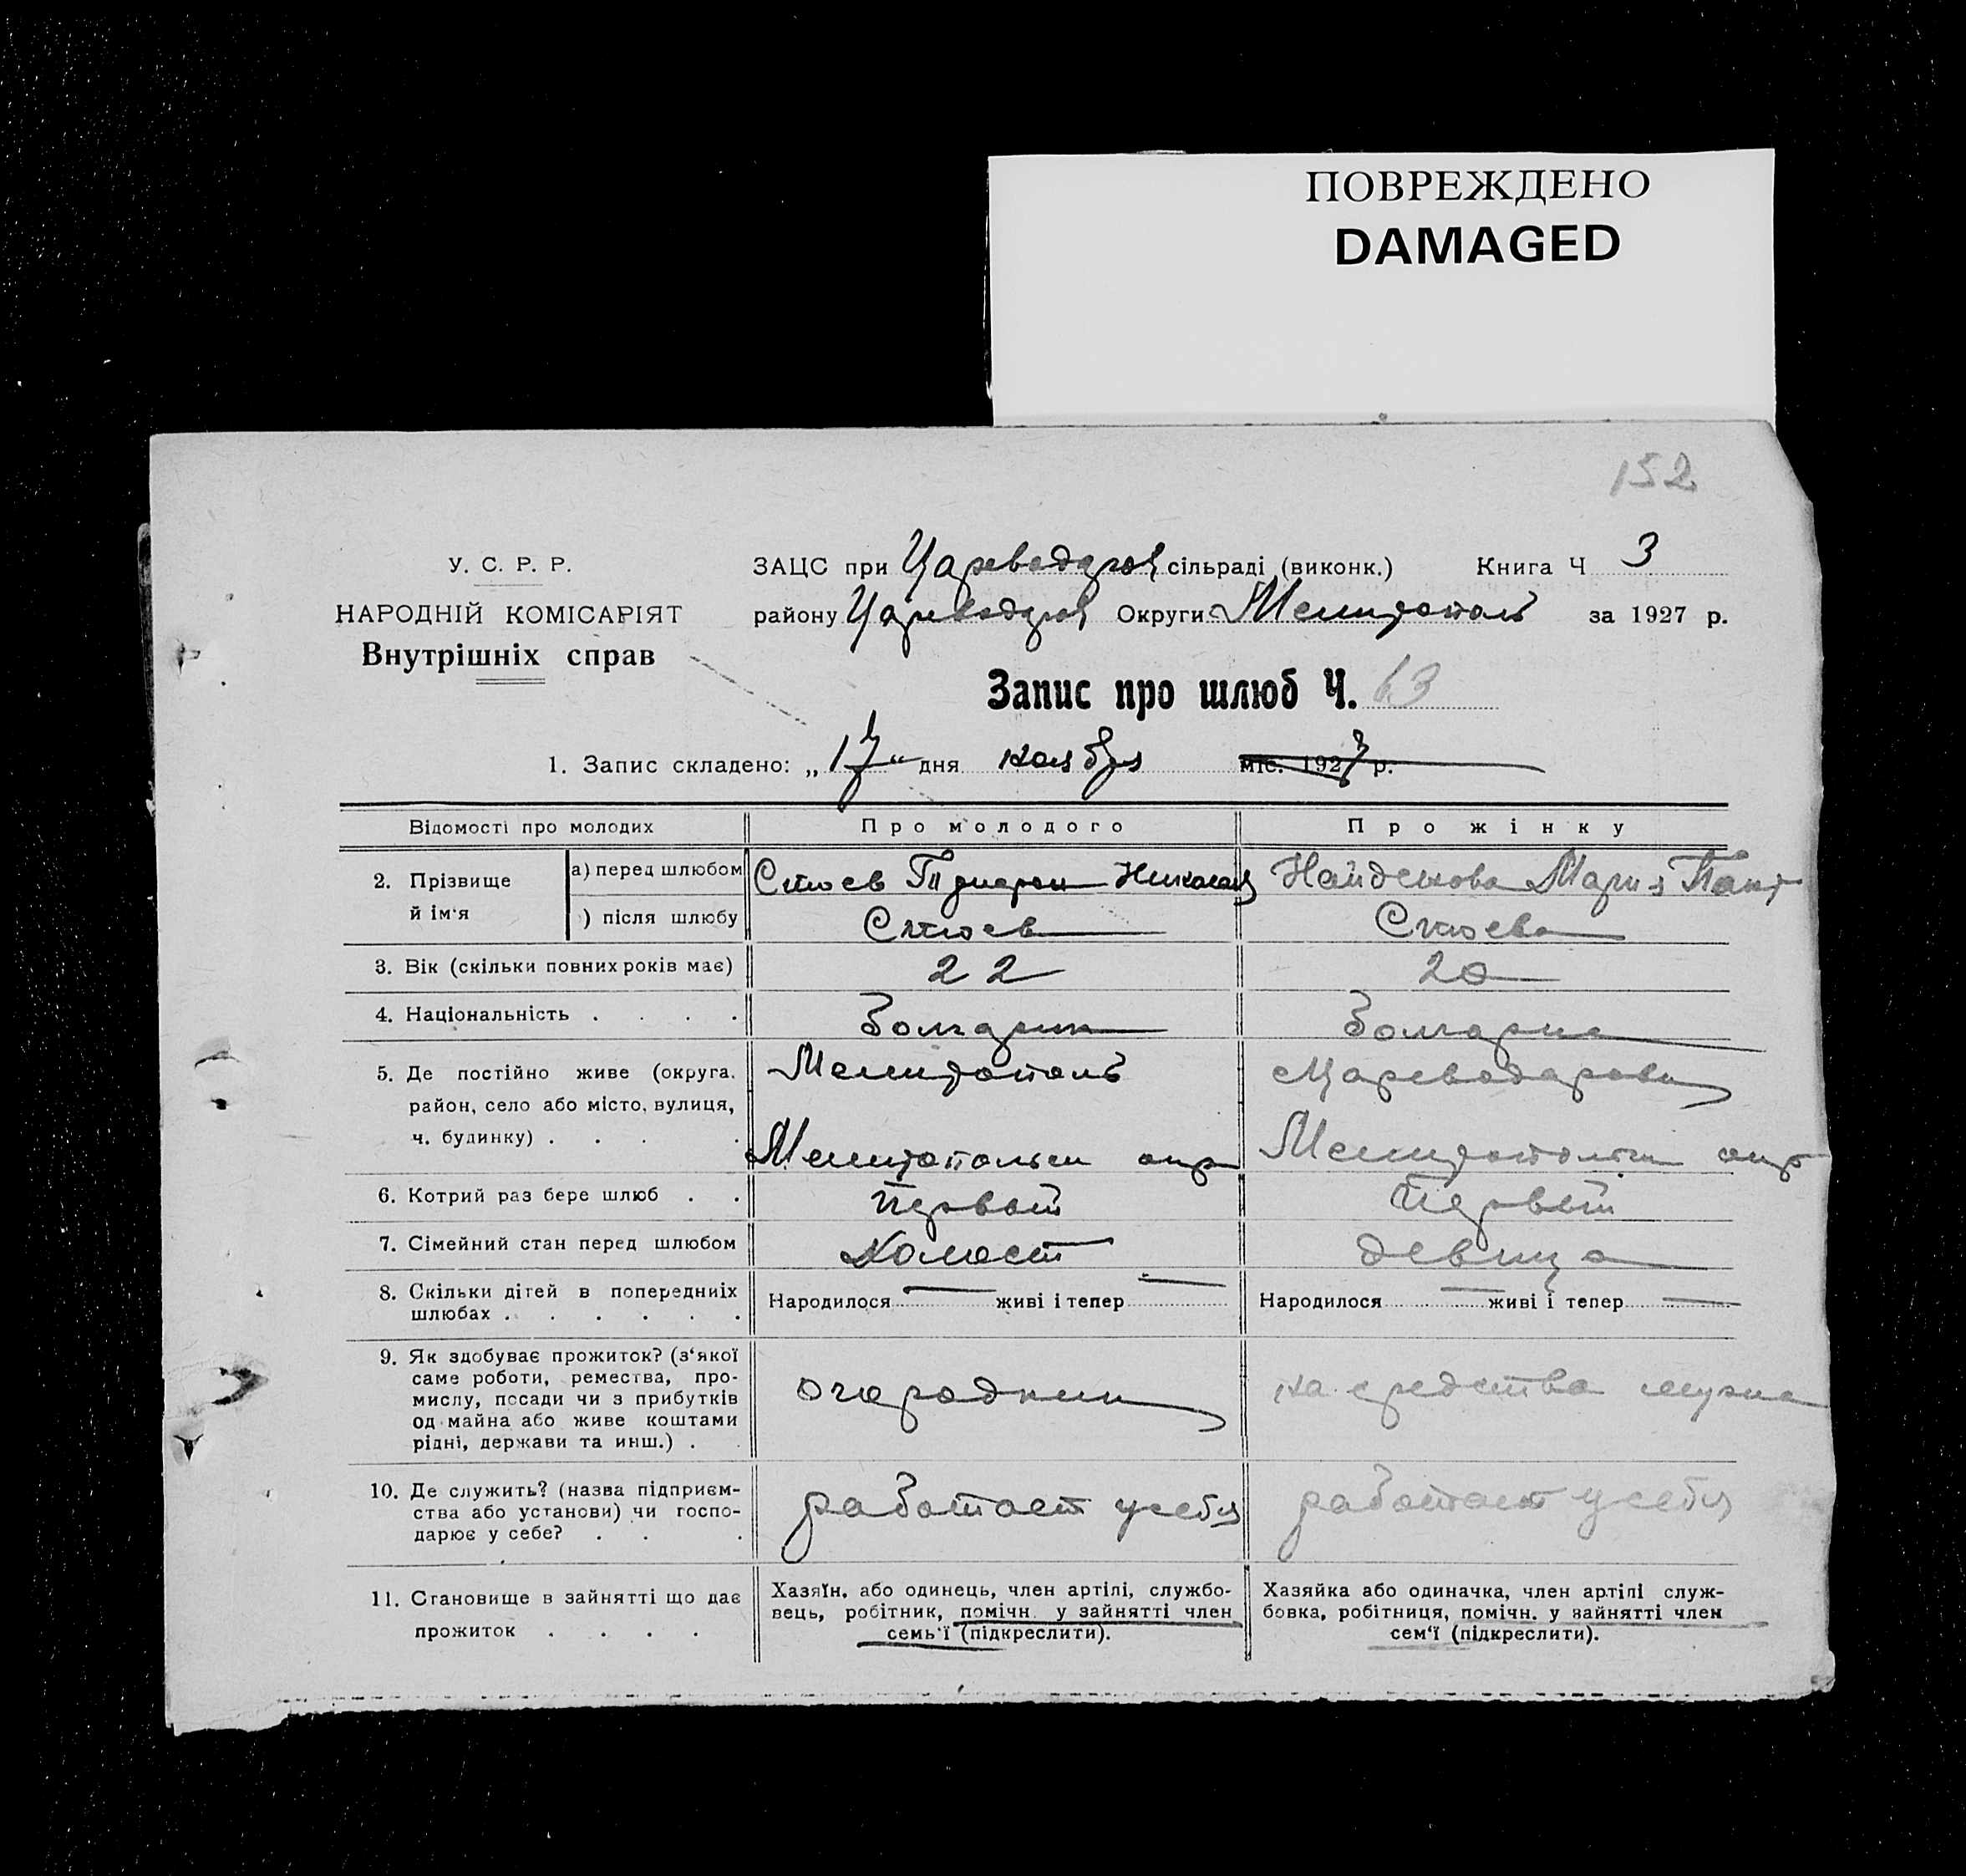 ПОВРЕЖДЕНО
DAMAGED
152
У. С. Р. Р.
НАРОДНІЙ КОМІСАРІЯТ
Внутрішніх справ
ЗАЦС при сільраді (виконк.) Книга Ч 3
району Округи Мелитополь за 1927 р.
Запис про шлюб Ч. 63
1. Запис складено: „17" дня ноября міс. 1927 р.
Відомості про молодих
Про молодого
Про жінку
2. Прізвище й ім'я
а) перед шлюбом
Стоев Николаев
Найденова Мария Пант
) після шлюбу
Стоев
Стоева
3. Вік (скільки повних років має)
22
20
4. Національність . . . .
Болгарин
Болгарка
5. Де постійно живе (округа,
район, село або місто, вулиця,
ч. будинку) . . . .
Мелитополь
Мелитопольск окр
Мелитопольск окр
6. Котрий раз бере шлюб . .
Первый
Первый
7. Сімейний стан перед шлюбом
Холост
девица
8. Скільки дітей в попередніх
шлюбах . . . . . .
Народилося — живі і тепер —
Народилося — живі і тепер —
9. Як здобуває прожиток? (з'якої
саме роботи, ремества, про-
мислу, посади чи з прибутків
од майна або живе коштами
рідні, держави та инш.) . .
огородник
на средства мужа
10. Де служить? (назва підприєм-
ства або установи) чи госпо-
дарює у себе? . . .
работает у себя
работает у себя
11. Становище в зайнятті що дає
прожиток . . . .
Хазяїн, або одинець, член артілі, службо-
вець, робітник, помічн. у зайнятті член
семь'ї (підкреслити).
Хазяйка або одиначка, член артілі служ-
бовка, робітниця, помічн. у зайнятті член
сем'ї (підкреслити).